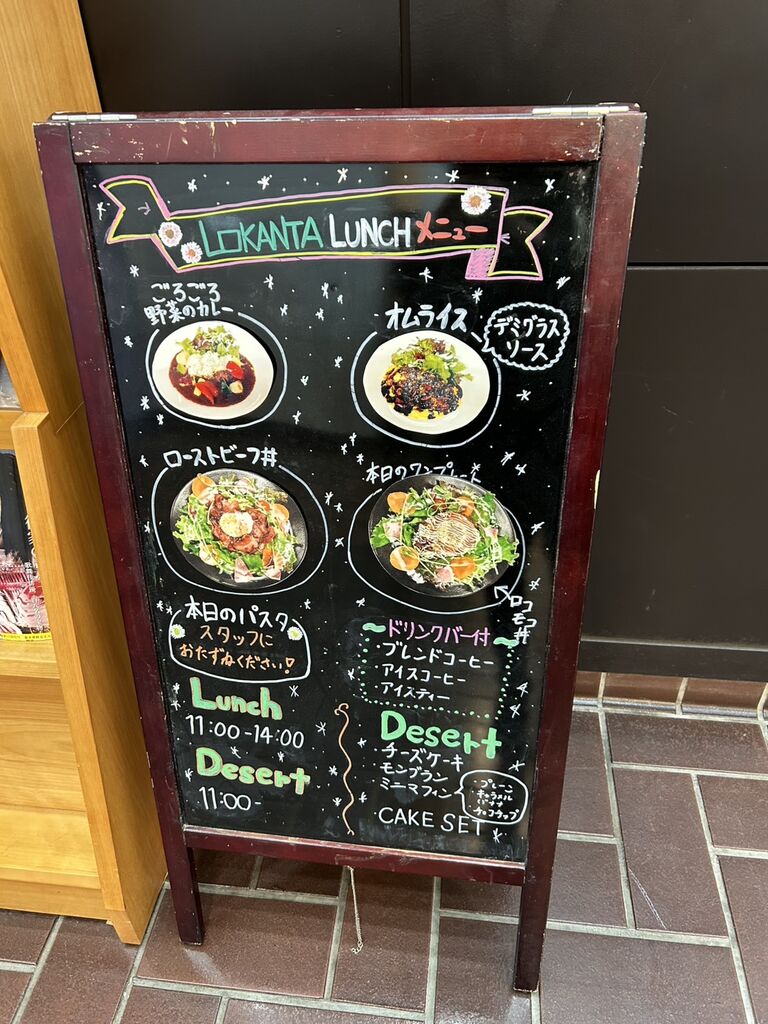 LOKANTA LUNCH メニュー
ごろごろ
野菜のカレー
オムライス
デミグラス
ソース
ローストビーフ丼
本日のワンプレート
ロコ
モコ
丼
本日のパスタ
スタッフに
おたずねください!
ドリンクバー付
ブレンドコーヒー
アイスコーヒー
アイスティー
Lunch
11:00-14:00
Desert
11:00-
Desert
チーズケーキ
モンブラン
ミニマフィン
・プレーン
・キャラメル
・バナナ
・チョコチップ
CAKE SET